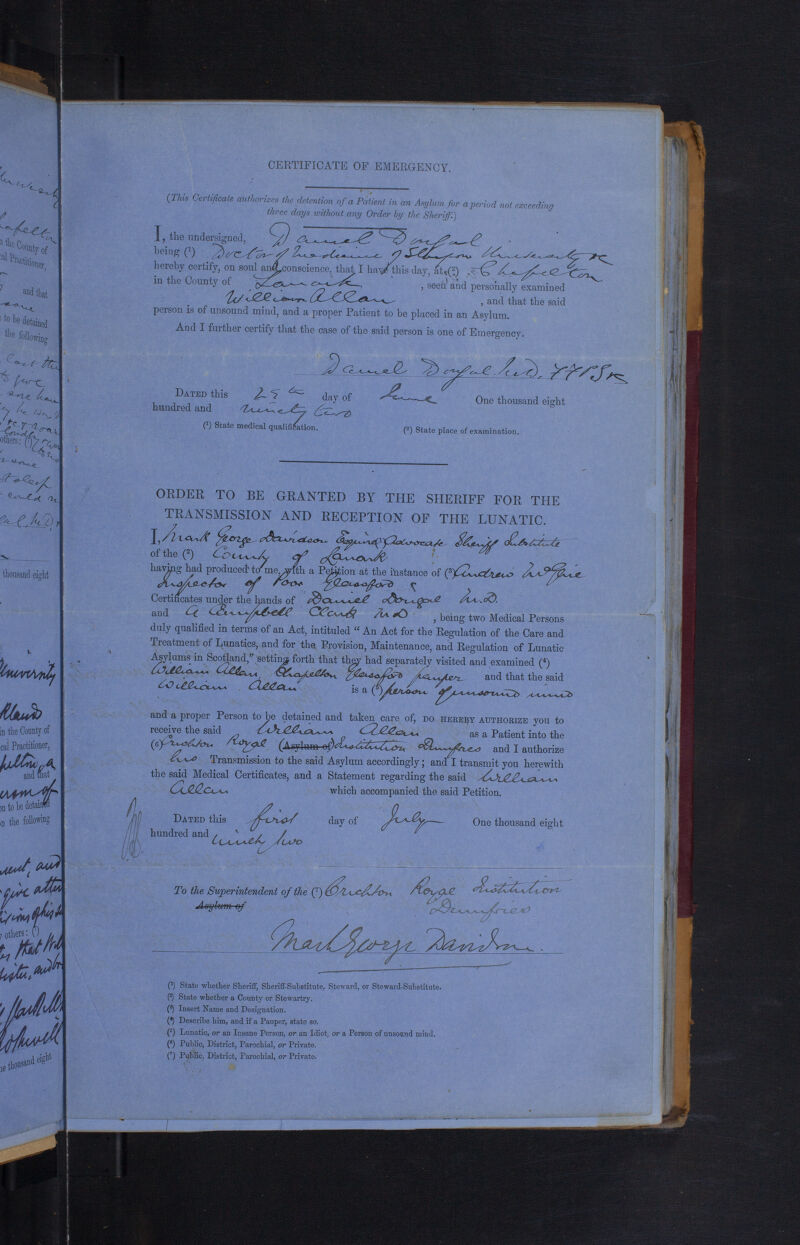 CERTIFICATE OF EMERGENCY.
(This Certificate authorizes the detention of a Patient in an Asylum for a period not exceeding
three days without any Order by the Sheriff.)
I, the undersigned, Daniel Dougal
being (¹) Doctor of Medicine of Glasgow University &c
hereby certify, on soul and conscience, that I have this day, at (²) Chapelton
in the County of Lanark, seen and personally examined
William Allan, and that the said
person is of unsound mind, and a proper Patient to be placed in an Asylum.
And I further certify that the case of the said person is one of Emergency.
Daniel Dougal M.D.
DATED this 29th day of June One thousand eight
hundred and ninety two
(¹) State medical qualification. (²) State place of examination.
ORDER TO BE GRANTED BY THE SHERIFF FOR THE
TRANSMISSION AND RECEPTION OF THE LUNATIC.
I, Mark George Davidson Esquire Advocate Sheriff Substitute
of the (²) County of Lanark
having had produced to me, with a Petition at the instance of (³) Andrew
Inspector of Poor Glassford
Certificates under the hands of Daniel Dougal M.D.
and A Campbell Clark M.D, being two Medical Persons
duly qualified in terms of an Act, intituled "An Act for the Regulation of the Care and
Treatment of Lunatics, and for the Provision, Maintenance, and Regulation of Lunatic
Asylums in Scotland," setting forth that they had separately visited and examined (⁴)
William Allan, Chapelton Glassford pauper and that the said
William Allan is a (⁵) person of unsound mind
and a proper Person to be detained and taken care of, DO HEREBY AUTHORIZE you to
receive the said William Allan as a Patient into the
(⁶) Crichton Royal (Asylum of) Institution Dumfries and I authorize
his Transmission to the said Asylum accordingly; and I transmit you herewith
the said Medical Certificates, and a Statement regarding the said William
Allan which accompanied the said Petition.
DATED this first day of July One thousand eight
hundred and ninety two
To the Superintendent of the (⁷) Crichton Royal Institution
Asylum of Dumfries
Mark George Davidson.
(¹) State whether Sheriff, Sheriff-Substitute, Steward, or Steward-Substitute.
(²) State whether a County or Stewartry.
(³) Insert Name and Designation.
(⁴) Describe him, and if a Pauper, state so.
(⁵) Lunatic, or an Insane Person, or an Idiot, or a Person of unsound mind.
(⁶) Public, District, Parochial, or Private.
(⁷) Public, District, Parochial, or Private.